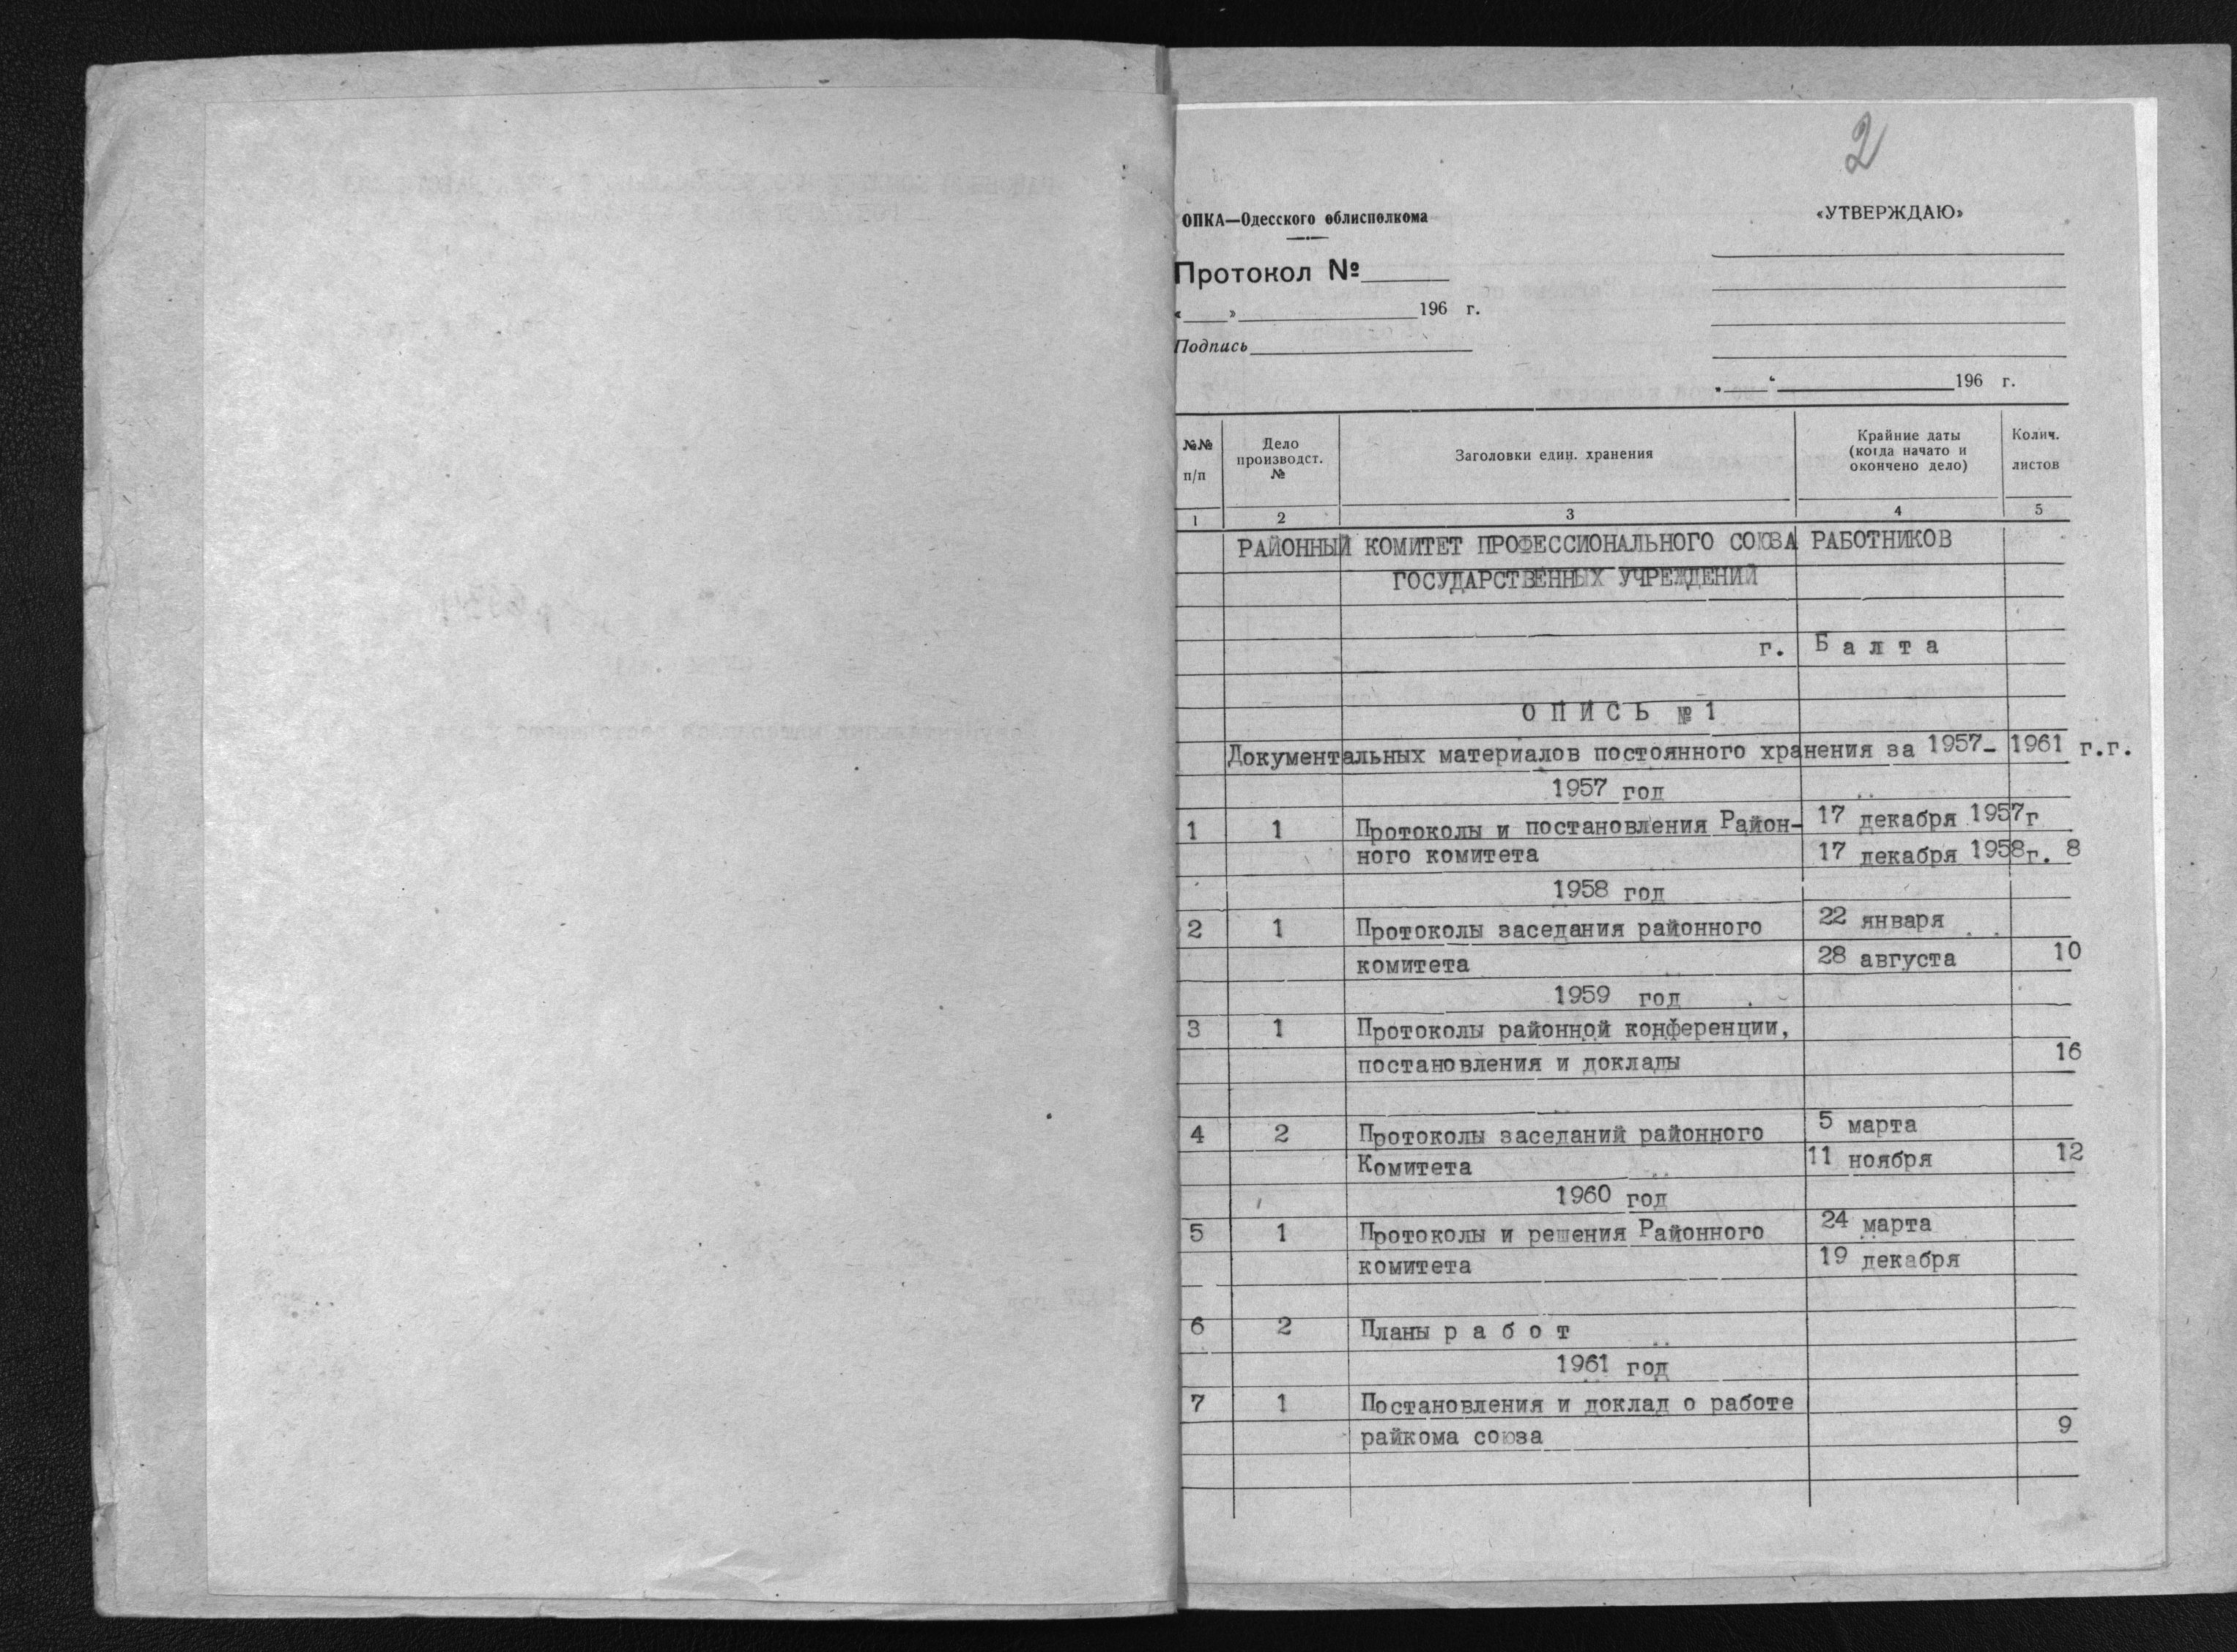 2
ОПКА—Одесского облисполкома
«УТВЕРЖДАЮ»
Протокол №
« » 196 г.
Подпись
„ “ 196 г.
№№ п/п
Дело производст. №
Заголовки един. хранения
Крайние даты (когда начато и окончено дело)
Колич. листов
1 2 3 4 5
РАЙОННЫЙ КОМИТЕТ ПРОФЕССИОНАЛЬНОГО СОЮЗА РАБОТНИКОВ
ГОСУДАРСТВЕННЫХ УЧРЕЖДЕНИЙ
г. Б а л т а
О П И С Ь № 1
Документальных материалов постоянного хранения за 1957- 1961 г.г.
1957 год
1 1 Протоколы и постановления Район- 17 декабря 1957г
ного комитета 17 декабря 1958г. 8
1958 год
2 1 Протоколы заседания районного 22 января
комитета 28 августа 10
1959 год
3 1 Протоколы районной конференции,
постановления и доклады 16
4 2 Протоколы заседаний районного 5 марта
Комитета 11 ноября 12
1960 год
5 1 Протоколы и решения Районного 24 марта
комитета 19 декабря
6 2 Планы р а б о т
1961 год
7 1 Постановления и доклад о работе
райкома союза 9